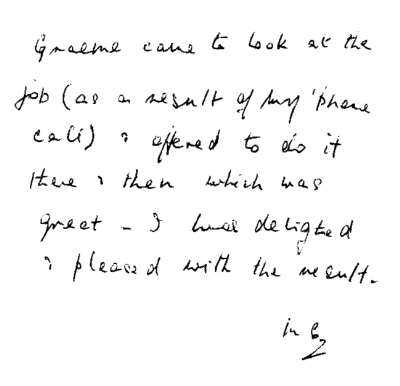 Graeme came to look at the
job (as a result of my 'phone
call) & offered to do it
there & then which was
great - I was delighted
& pleased with the result.